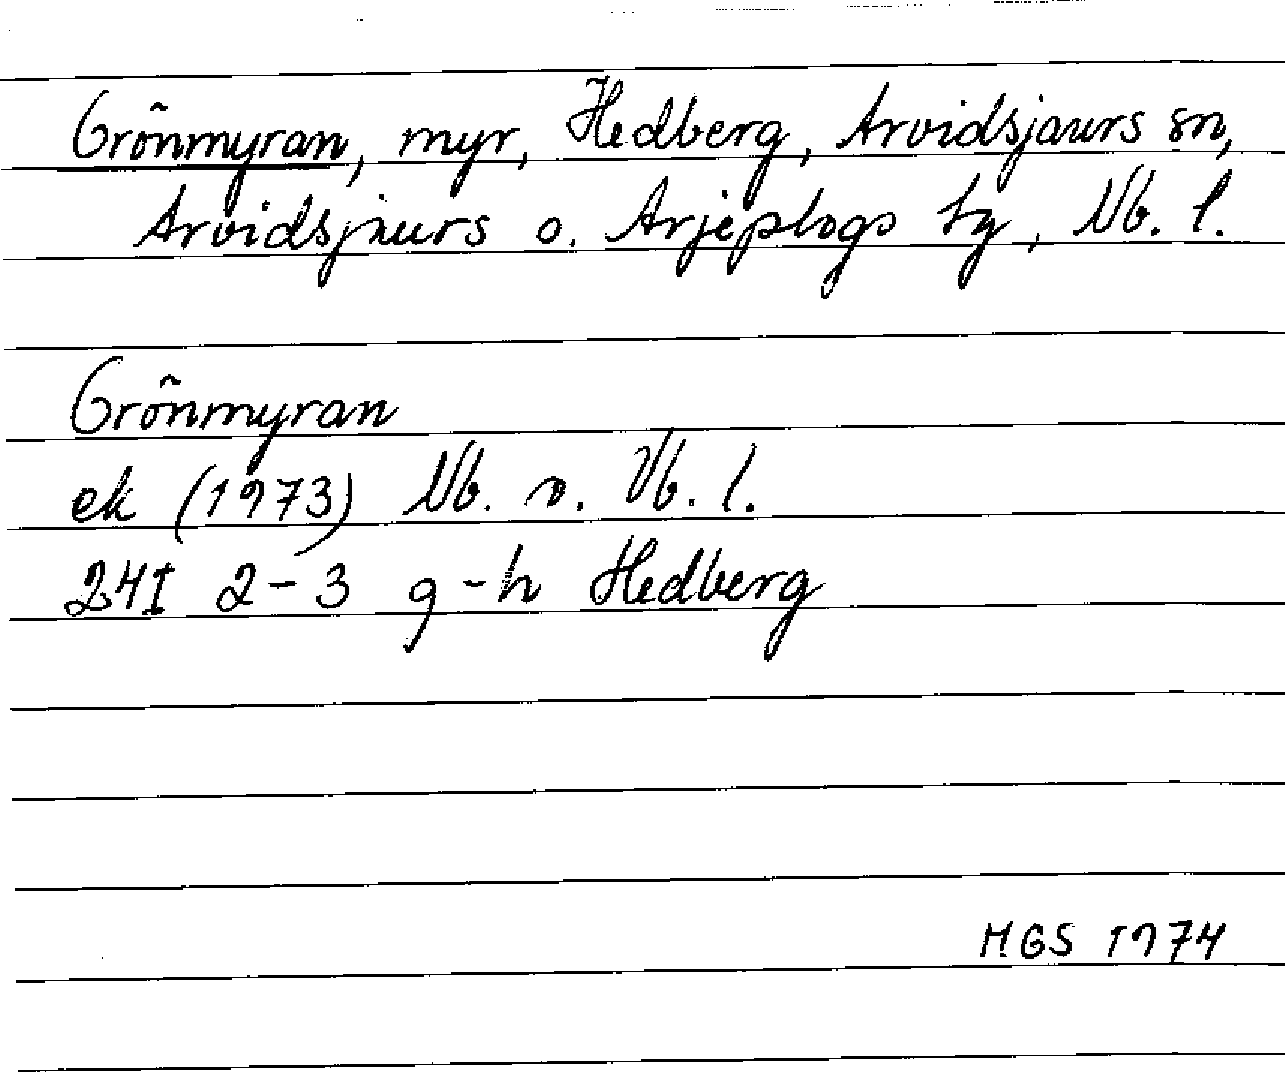 Grönmyran, myr, Hedberg, Arvidsjaurs sn,
Arvidsjaurs o. Arjeplogs ty, Nb. l.
Grönmyran
ek (1973) Nb. o. Vb. l.
24I 2-3 g-h Hedberg
MGS 1974